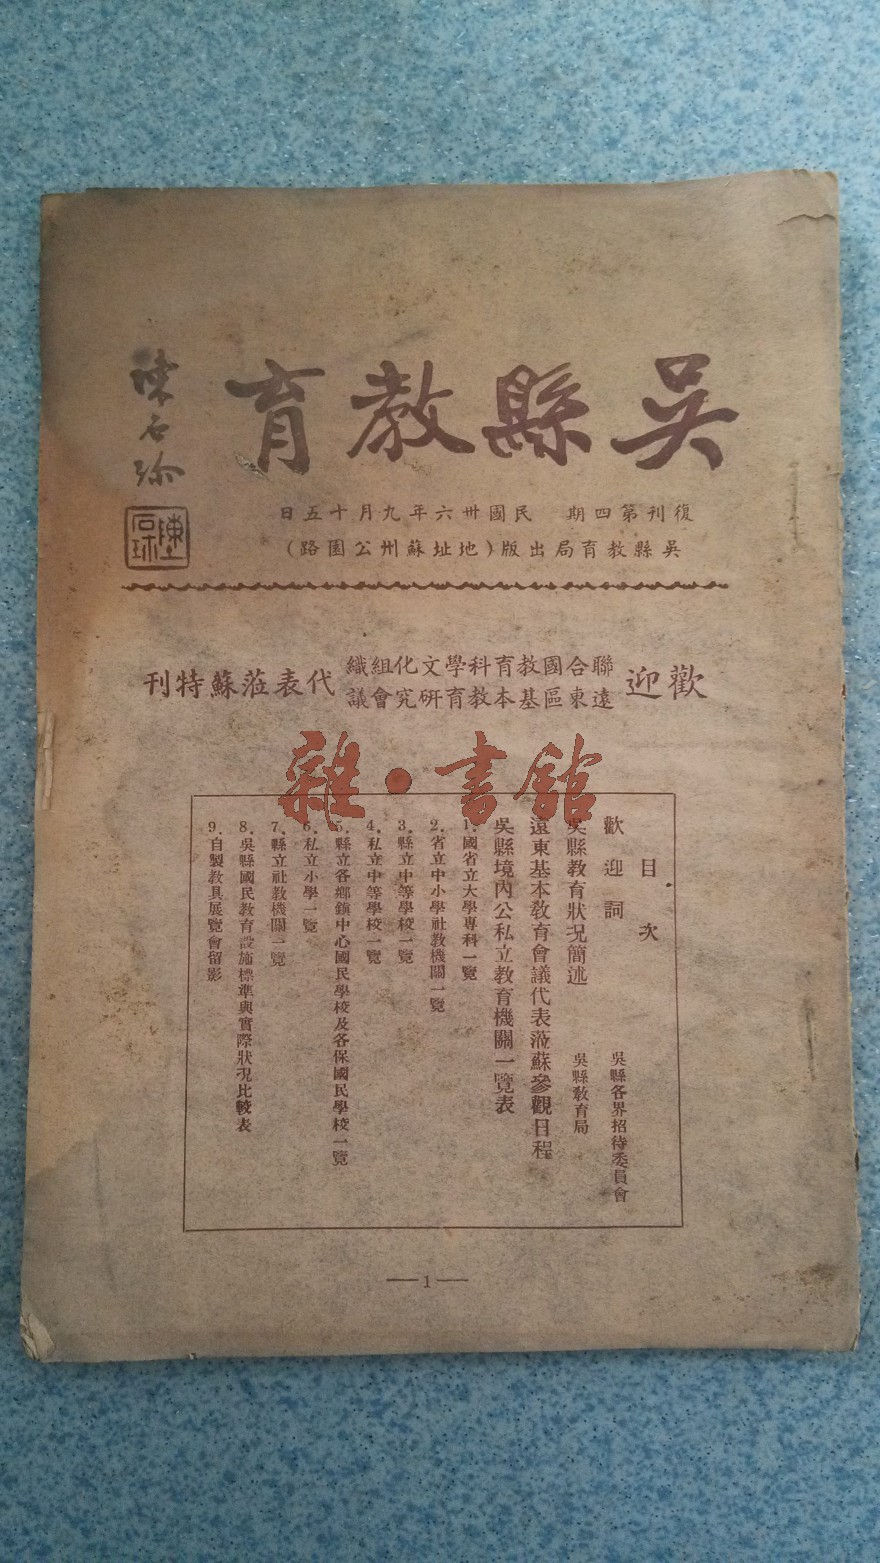 吳縣教育
陳石珍
復刊第四期 民國卅六年九月十五日
吳縣教育局出版(地址蘇州公園路)
歡迎
聯合國教育科學文化組織
遠東區基本教育研究會議
代表蒞蘇特刊
雜·書館
目次
歡迎詞 吳縣各界招待委員會
吳縣教育狀況簡述 吳縣教育局
遠東基本教育會議代表蒞蘇參觀日程
吳縣境內公私立教育機關一覽表
1.國省立大學專科一覽
2.省立中小學社教機關一覽
3.縣立中等學校一覽
4.私立中等學校一覽
5.縣立各鄉鎮中心國民學校及各保國民學校一覽
6.私立小學一覽
7.縣立社教機關一覽
8.吳縣國民教育設施標準與實際狀況比較表
9.自製教具展覽會留影
—1—